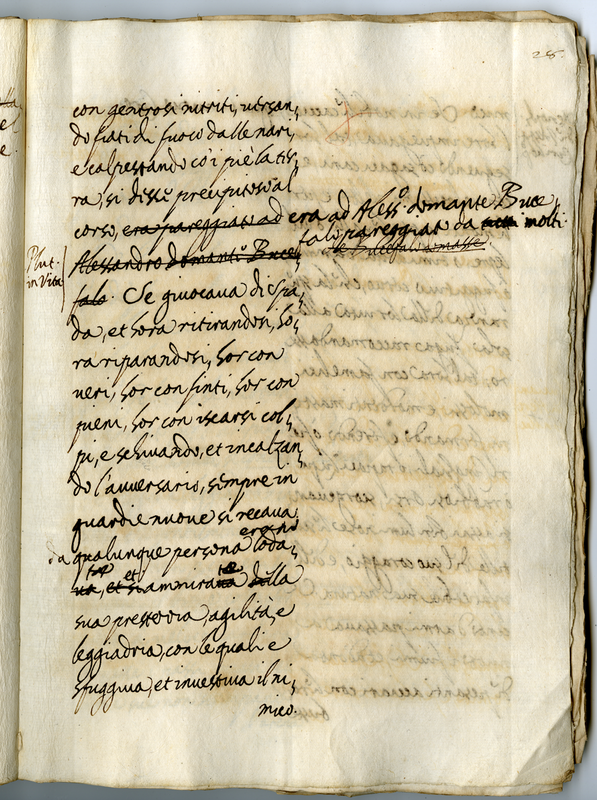 28.
con generosi nitriti, versan,
do fiati di fuoco dalle nari,
e calpestando co i piè la ter,
ra, si disse precipitoso al
corso, era pareggiato ad era ad Aless.o domante Buce
falo pareggiat da molti
Alessandro domante Bucef,
Plut.
in Vita
falo. Se giuocaua di spa,
da, et hora ritirandosi, ho,
ra riparandosi, hor con
ueri, hor con finti, hor con
pieni, hor con iscarsi col,
pi, e schiuando, et incalzan,
do l'auuersario, sempre in
guardie nuoue si recaua
da qualunque persona loda,
ammirata
sua prestezza, agilità, e
leggiadria, con le quali e
sfuggiua, et inuestiua il ni,
mico.